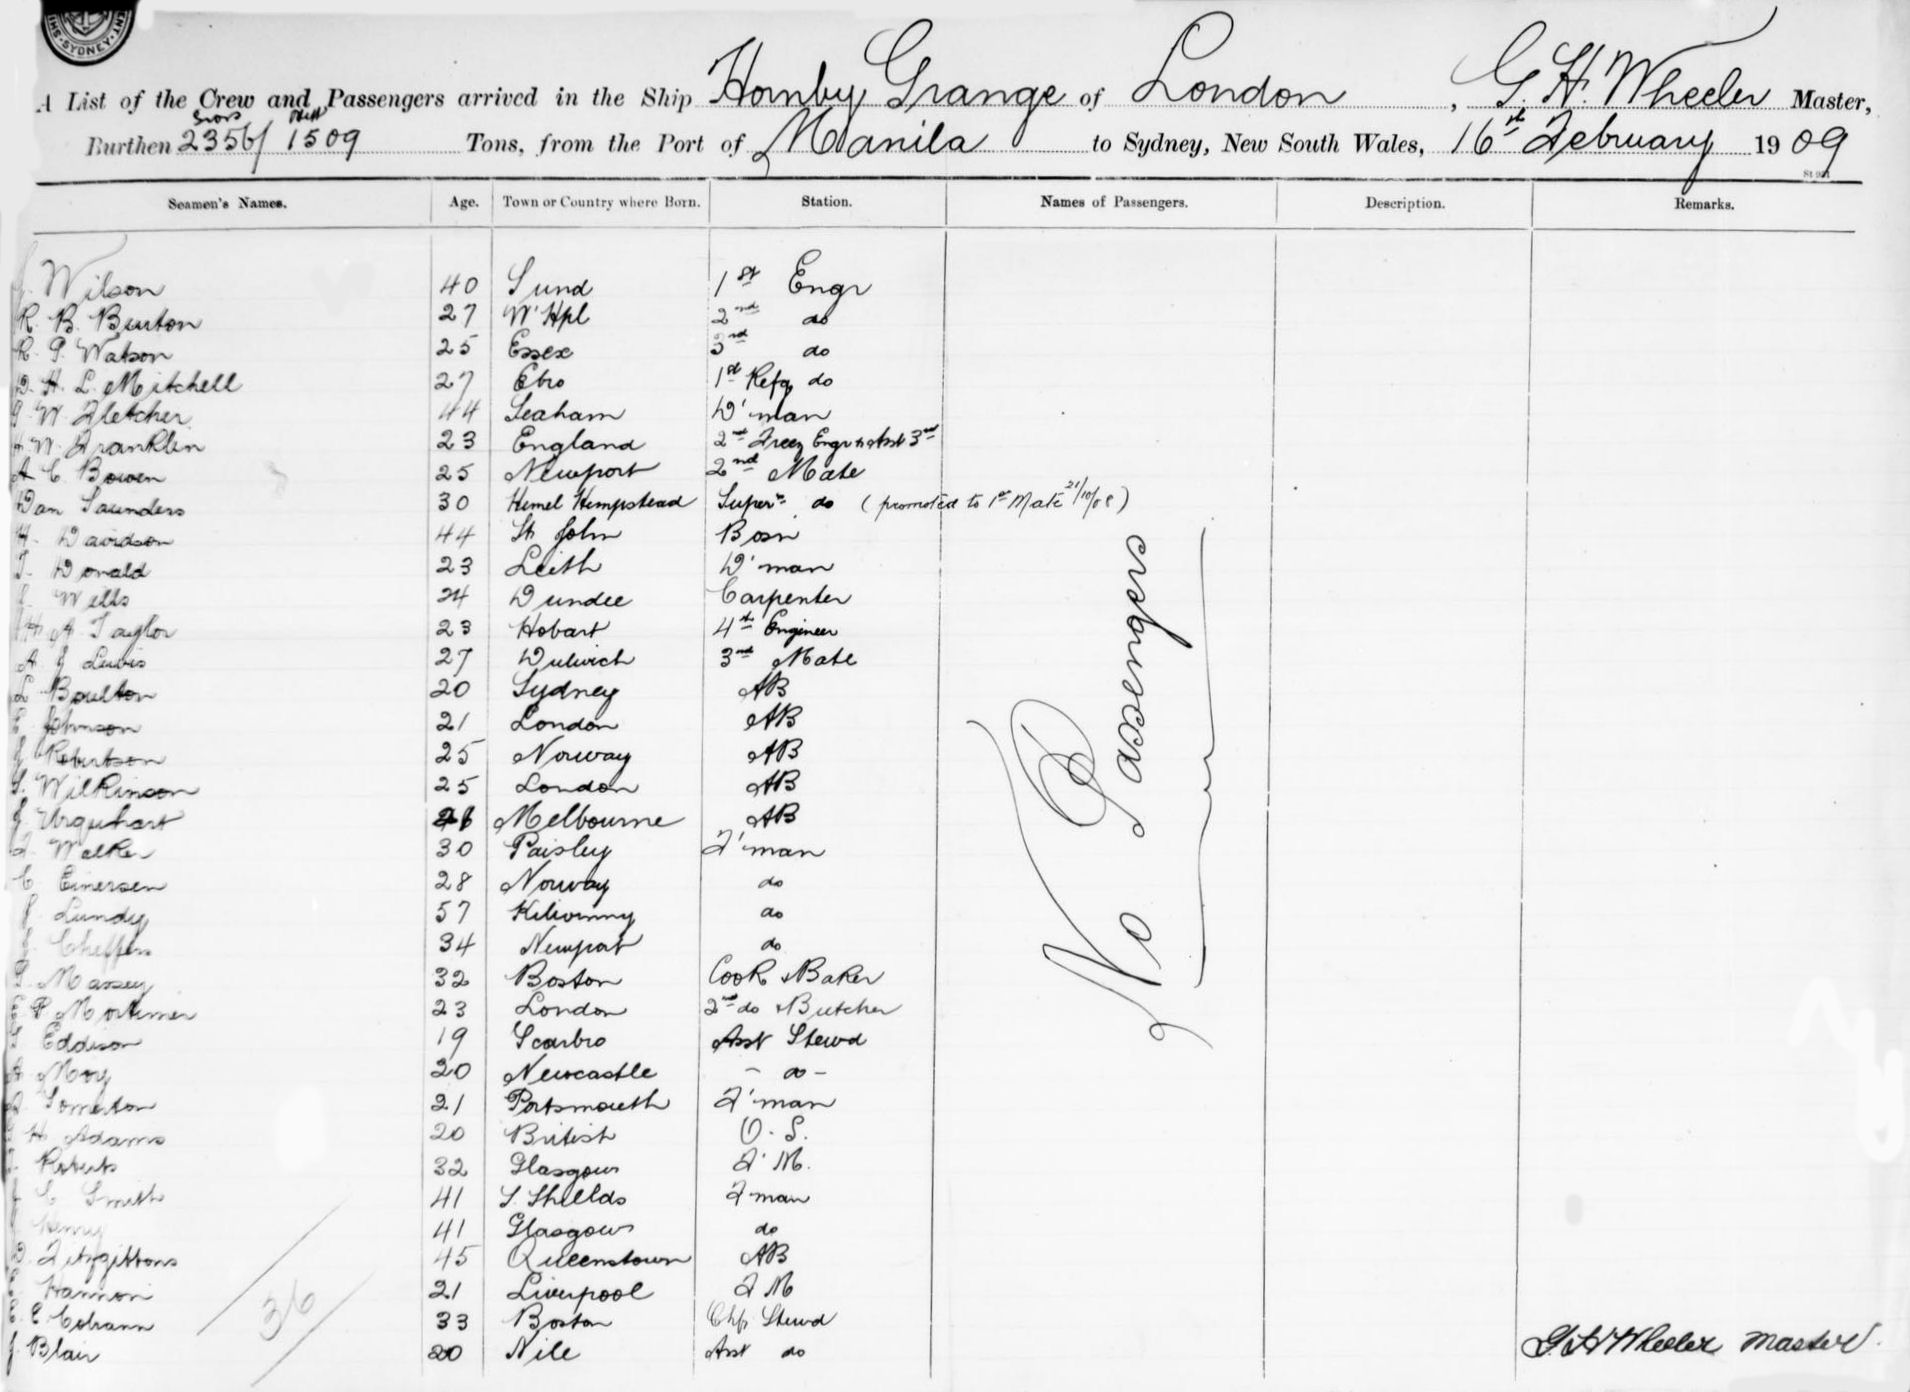 SYDNEY
A List of the Crew and Passengers arrived in the Ship Hornby Grange of London, G. H. Wheeler Master,
Gross Nett
Burthen 2356/ 1509 Tons, from the Port of Manila to Sydney, New South Wales, 16th February 1909
Seamen's Names. Age. Town or Country where Born. Station. Names of Passengers. Description. Remarks.
J. Wilson 40 Sund 1st Engr
R. B. Burton 27 W'Hpl 2nd do
R. P. Watson 25 Essex 3rd do
D. H. L. Mitchell 27 Ebro 1st Refg do
G. W. Fletcher 44 Seaham D'man
H. W. Franklin 23 England 2nd Freez Engr & Asst 3rd
A C. Bowen 25 Newport 2nd Mate
Dan Saunders 30 Hemel Hempstead Super do (promoted to 1st Mate 21/10/08)
H. Davidson 44 St John Bosn
T. Donald 23 Leith D'man
J. Wells 24 Dundee Carpenter
H. A. Taylor 23 Hobart 4th Engineer
A. J Lewis 27 Dulwich 3rd Mate
L. Boulton 20 Sydney AB
C. Johnson 21 London AB
J Robertson 25 Norway AB
S. Wilkinson 25 London AB
J. Urquhart 26 Melbourne AB
Walker 30 Paisley F'man
C Einersen 28 Norway do
J. Lundy 57 Kilwinny do
Cheffers 34 Newport do
Massey 32 Boston Cook & Baker
P Mortimer 23 London 2nd do & Butcher
Eddison 19 Scarbro Asst Stewd
A Moy 20 Newcastle - do -
Somerton 21 Portsmouth F'man
H Adams 20 British O. S.
Roberts 32 Glasgow F'M.
C Smith 41 S. Shields F'man
Henry 41 Glasgow do
D. Fitzgibbons 45 Queenstown AB
Hannon 21 Liverpool F M
C. E Cobrann 33 Boston Chf Stewd
J. Blair 20 Nile Asst do
No Passengers
36
G. H Wheeler Master